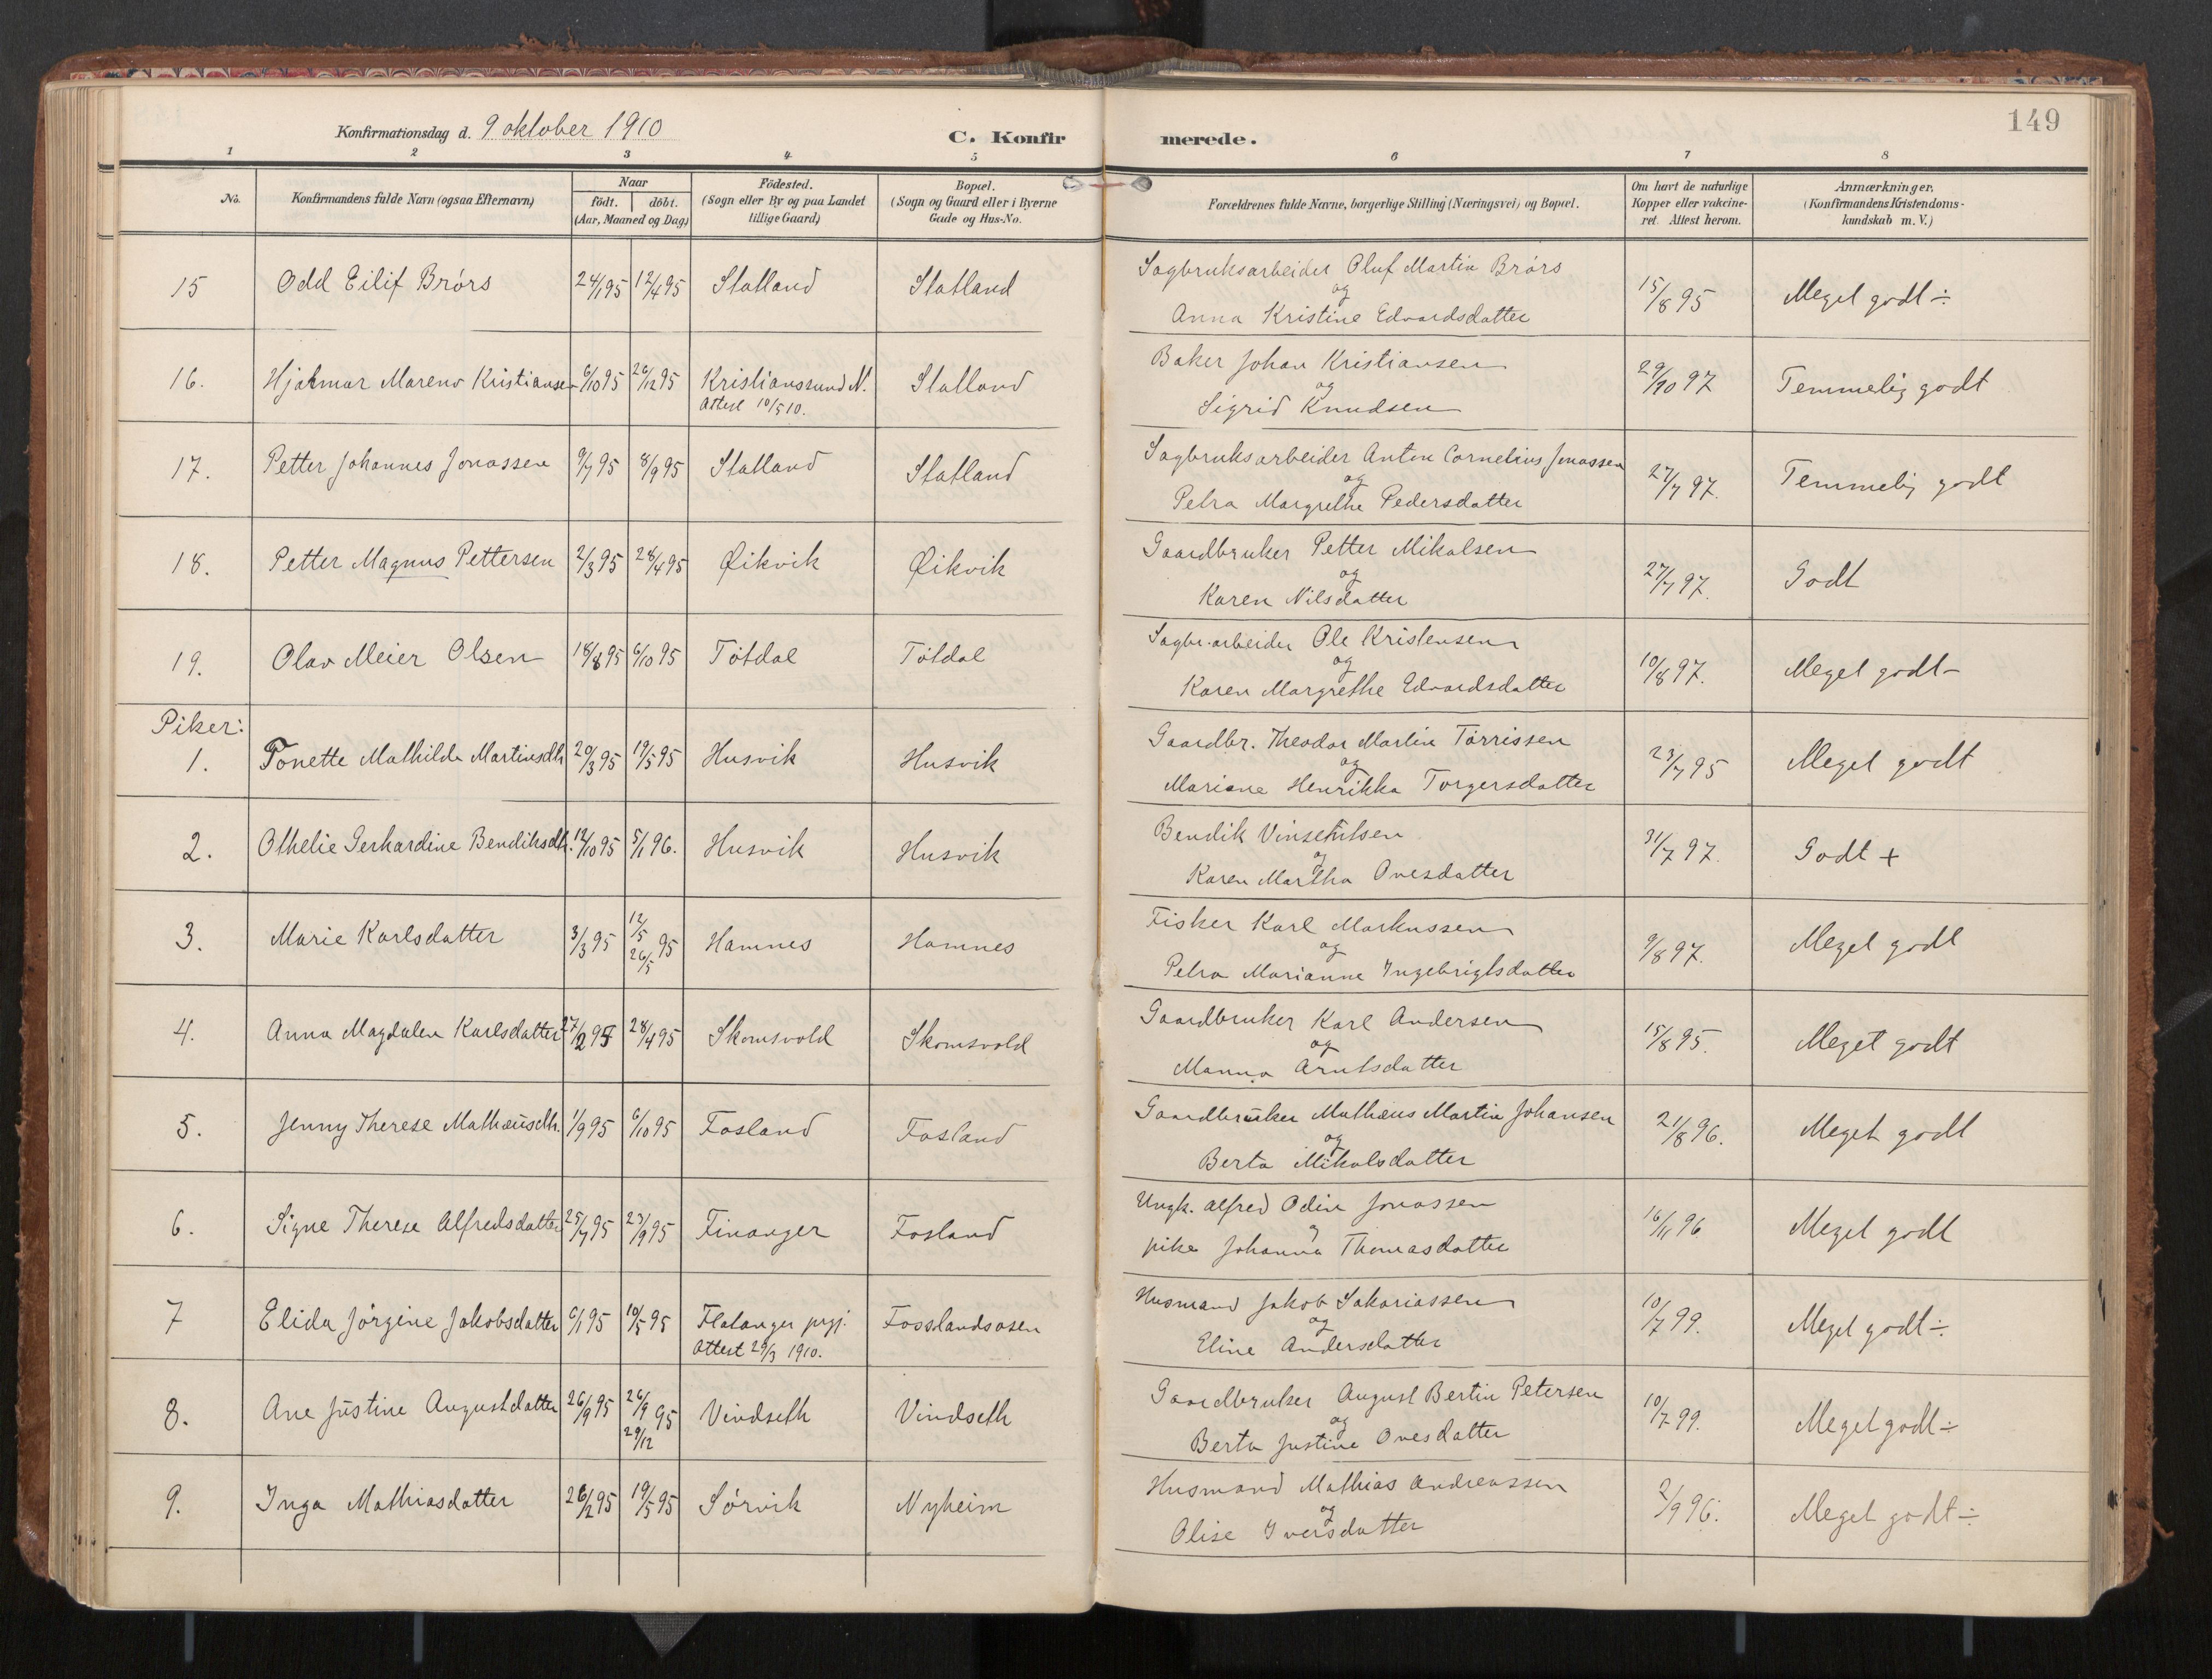 149
Konfirmationsdag d. 9 oktober 1910
C. Konfirmerede.
1 2 3 4 5 6 7 8
No.
Konfirmandens fulde Navn (ogsaa Efternavn)
Naar
født. døbt.
(Aar, Maaned og Dag)
Fødested.
(Sogn eller By og paa Landet
tillige Gaard)
Bopæl.
(Sogn og Gaard eller i Byerne
Gade og Hus-No.
Forældrenes fulde Navne, borgerlige Stilling (Næringsvei) og Bopæl.
Om havt de naturlige
Kopper eller vakcine-
ret. Attest herom.
Anmærkninger.
(Konfirmandens Kristendoms-
kundskab m. V.)
15 Odd Eilif Brørs 24/1 95 12/4 95 Statland Statland Sagbruksarbeider Oluf Martin Brørs 15/8 95 Meget godt ÷
og
Anna Kristine Edvardsdatter
16. Hjalmar Mareno Kristiansen 6/10 95 26/12 95 Kristianssund N. Statland Baker Johan Kristiansen 29/10 97 Temmelig godt
Attest 10/5 10. og
Sigrid Knudsen
17. Petter Johannes Jonassen 9/7 95 8/9 95 Statland Statland Sagbruksarbeider Anton Cornelius Jonassen 27/7 97. Temmelig godt
og
Petra Margrethe Pedersdatter
18. Petter Magnus Pettersen 2/3 95 28/4 95 Øikvik Øikvik Gaardbruker Petter Mikalsen 27/7 97. Godt
og
Karen Nilsdatter
19. Olav Meier Olsen 18/8 95 6/10 95 Tøtdal Tøtdal Sagbr.arbeider Ole Kristensen 10/8 97. Meget godt -
og
Karen Margrethe Edvardsdatter
Piker:
1. Tonette Mathilde Martinsdtr 20/3 95 19/5 95 Husvik Husvik Gaardbr. Theodor Martin Tørrissen 23/7 95 Meget godt
og
Mariane Henrikka Torgersdatter
2. Othelie Gerhardine Bendiksdtr. 12/10 95 5/1 96. Husvik Husvik Bendik Vinsentsen 31/7 97. Godt +
og
Karen Martha Ovesdatter
3. Marie Karlsdatter 3/3 95 12/5 26/5 95 Hamnes Hamnes Fisker Karl Markussen 9/8 97. Meget godt
og
Petra Marianne Ingebrigtsdatter
4. Anna Magdalen Karlsdatter 27/2 95 28/4 95 Skomsvold Skomsvold Gaardbruker Karl Andersen 15/8 95. Meget godt
og
Manna Arntsdatter
5. Jenny Therese Mathæusdtr. 1/9 95 6/10 95 Fosland Fosland Gaardbruker Mathæus Martin Johansen 21/8 96. Meget godt
og
Berta Mikalsdatter
6. Signe Therese Alfredsdatter 25/7 95 23/9 95 Finanger Fosland Ungk. Alfred Odin Jonassen 16/11 96 Meget godt
og
pike Johanna Thomasdatter
7 Elida Jørgine Jakobsdatter 6/1 95 10/5 95 Flatanger prgj. Fosslandsosen Husmand Jakob Sakariassen 10/7 99. Meget godt ÷
Attest 29/3 1910. og
Eline Andersdatter
8. Ane Justine Augustdatter 26/9 95 26/9 29/12 95 Vindseth Vindseth Gaardbruker August Bertin Petersen 10/7 99. Meget godt ÷
og
Berta Justine Ovesdatter
9. Inga Mathiasdatter 26/2 95 19/5 95 Sørvik Nyheim Husmand Mathias Andreassen 2/9 96. Meget godt ÷
og
Olise Iversdatter